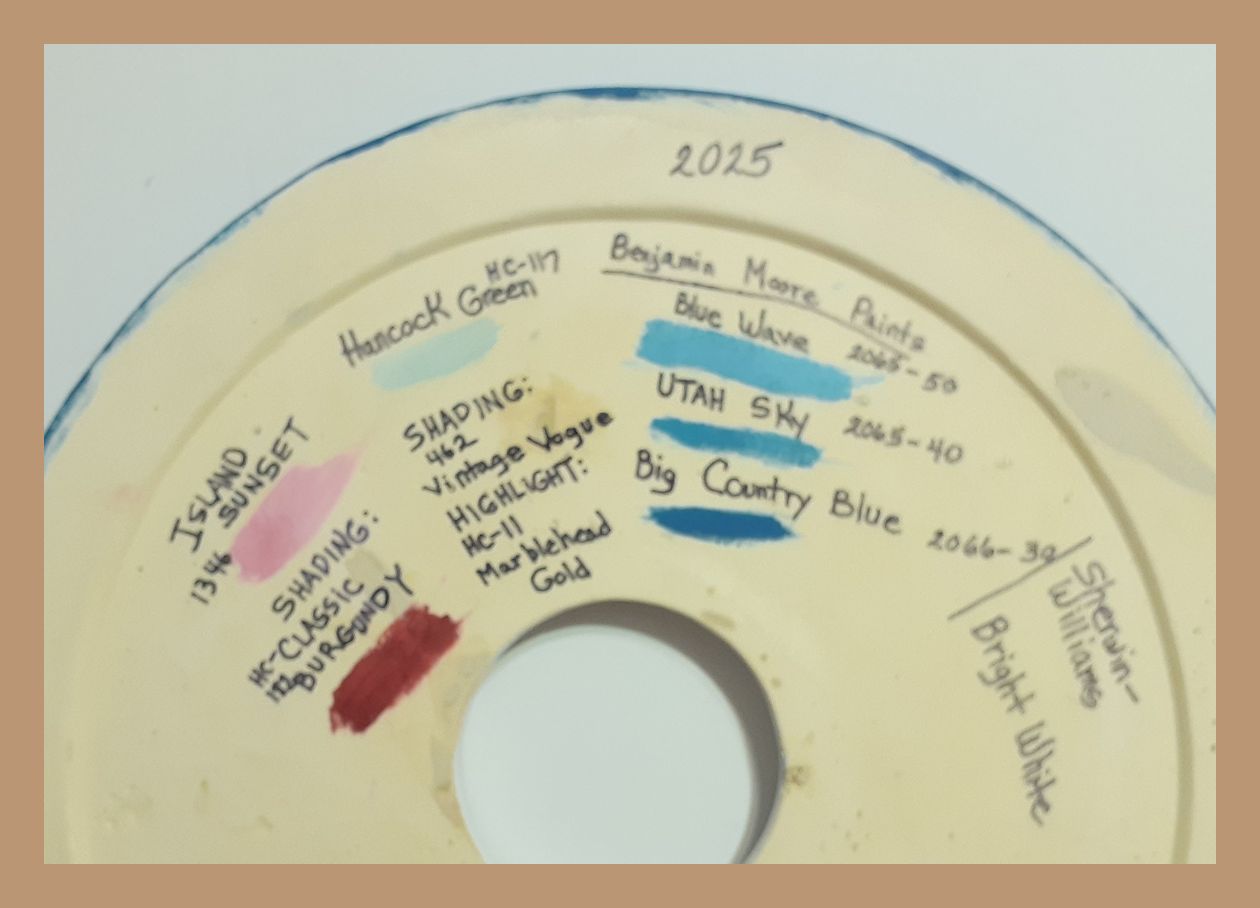 2025
Benjamin Moore Paints
Blue Wave 2065-50
UTAH SKY 2065-40
Big Country Blue 2066-30
HC-117
Hancock Green
SHADING:
462
Vintage Vogue
HIGHLIGHT:
HC-11
Marblehead
Gold
ISLAND
SUNSET
1346
SHADING:
HC-CLASSIC
BURGUNDY
Sherwin-
Williams
Bright White